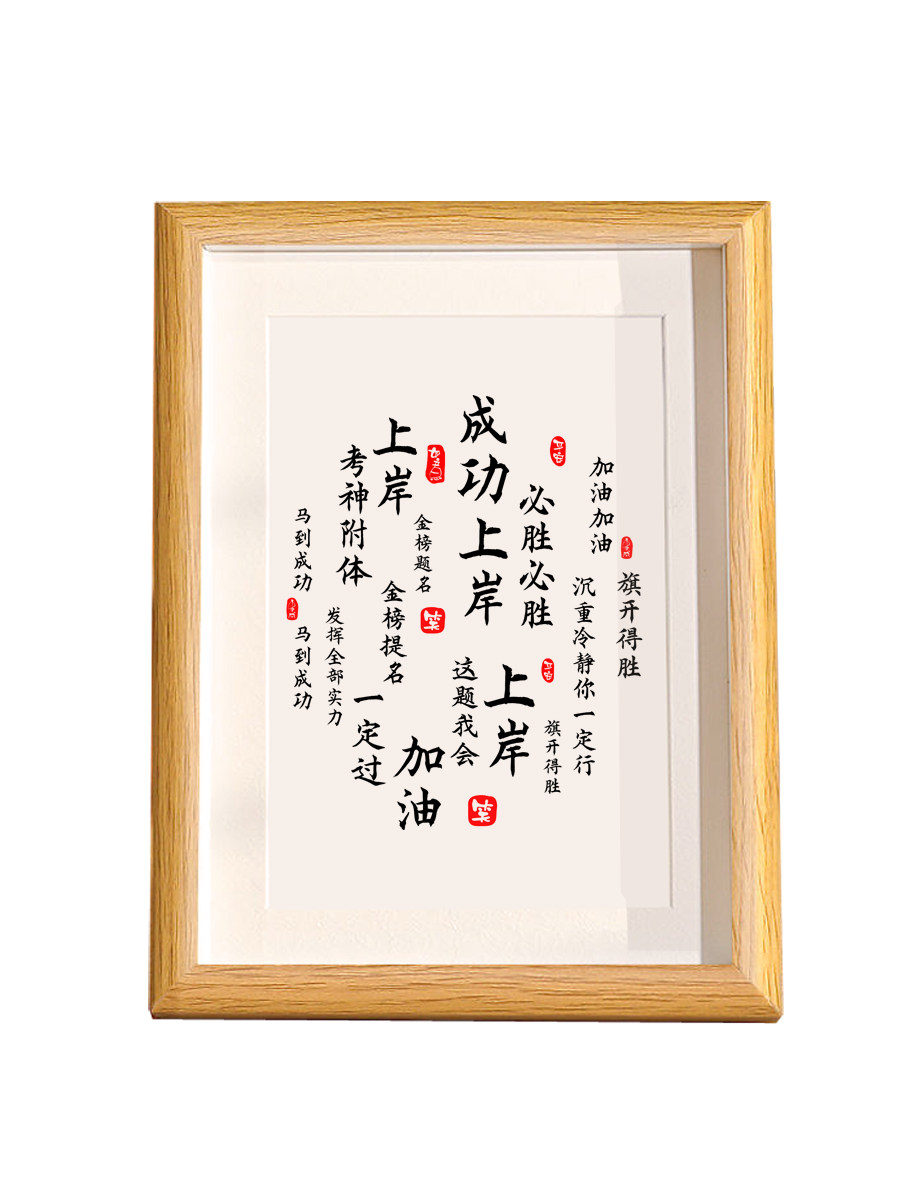 加油加油
旗开得胜
沉重冷静你一定行
必胜必胜
旗开得胜
成功上岸
上岸
这题我会
笑
金榜题名
笑
上岸
金榜提名
加油
考神附体
一定过
发挥全部实力
马到成功
马到成功